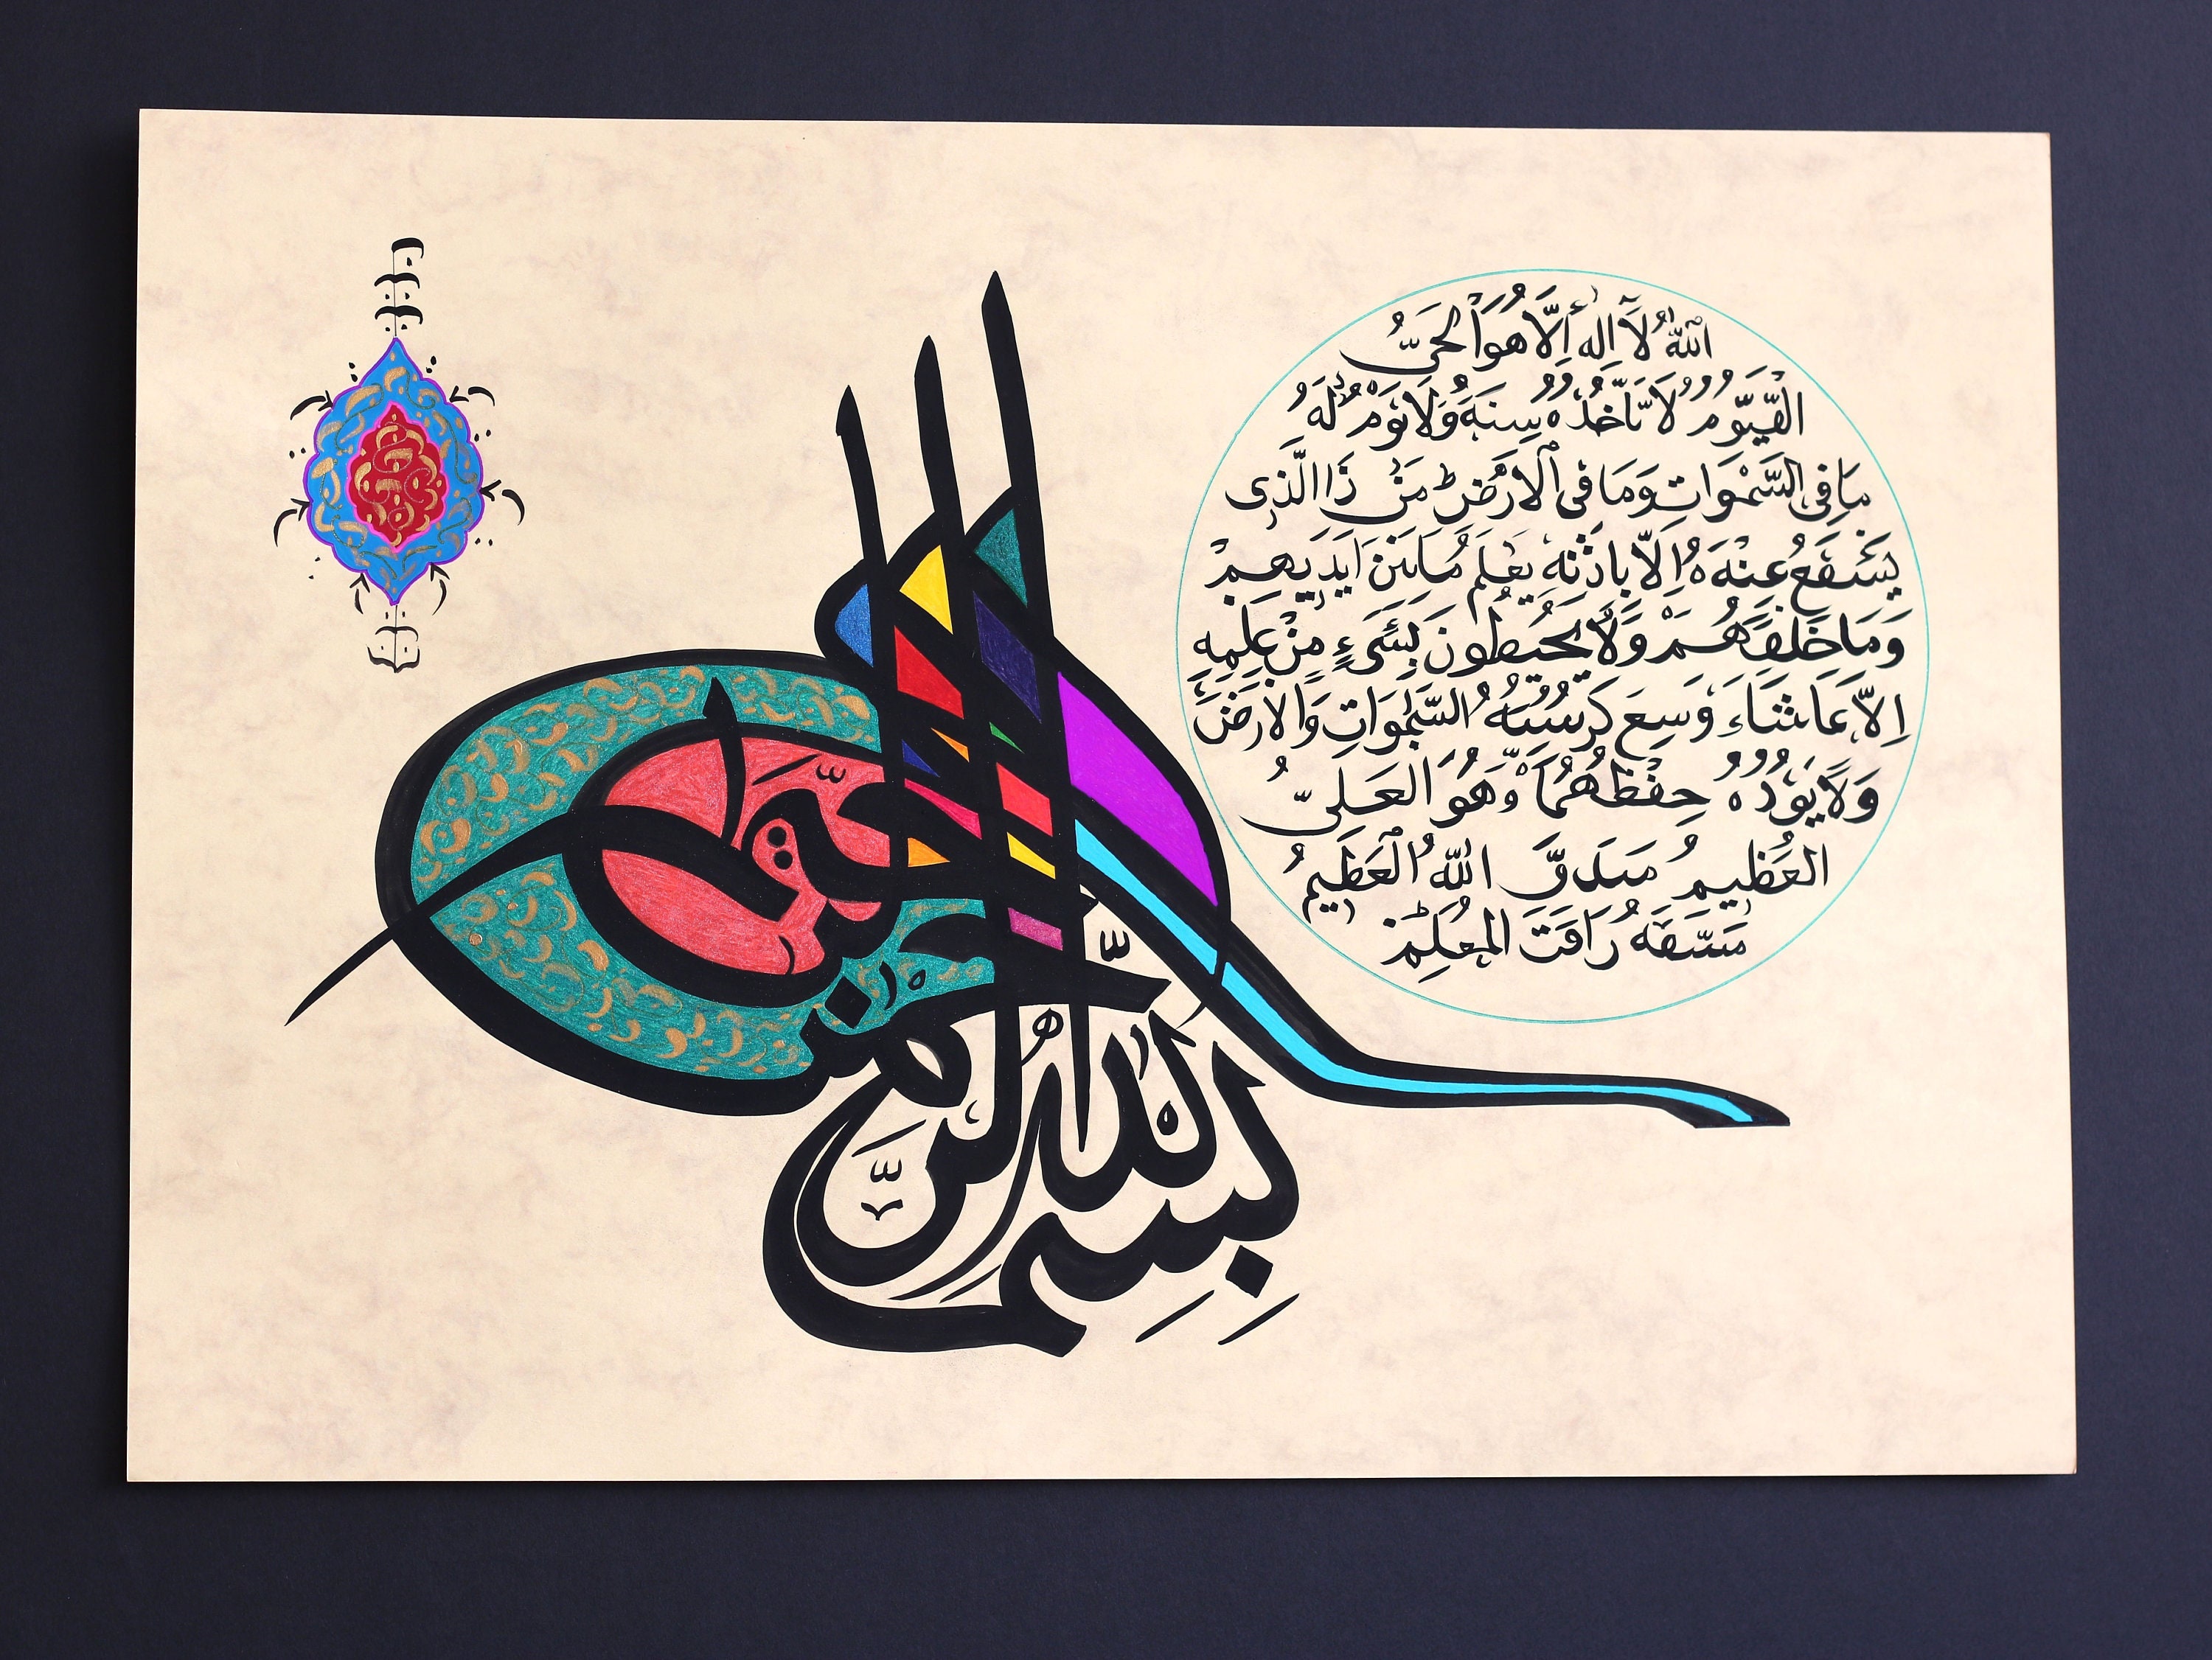 ٱللّٰهُ لَآ اِلٰهَ اِلَّا هُوَ اَلْحَيُّ
الْقَيُّومُ لَا تَأْخُذُهُ سِنَةٌ وَلَا نَوْمٌ لَهُ
مَا فِى السَّمٰوَاتِ وَمَا فِى الْاَرْضِ مَنْ ذَا الَّذِى
يَشْفَعُ عِنْدَهُ اِلَّا بِاِذْنِهِ يَعْلَمُ مَا بَيْنَ اَيْدِيهِمْ
وَمَا خَلْفَهُمْ وَلَا يُحِيطُونَ بِشَىْءٍ مِنْ عِلْمِهِ
اِلَّا بِمَا شَاءَ وَسِعَ كُرْسِيُّهُ السَّمٰوَاتِ وَالْاَرْضَ
وَلَا يَؤُدُهُ حِفْظُهُمَا وَهُوَ الْعَلِىُّ
الْعَظِيمُ صَدَقَ اللّٰهُ الْعَظِيمُ
بِسْمِ اللّٰهِ الرَّحْمٰنِ الرَّحِيمِ